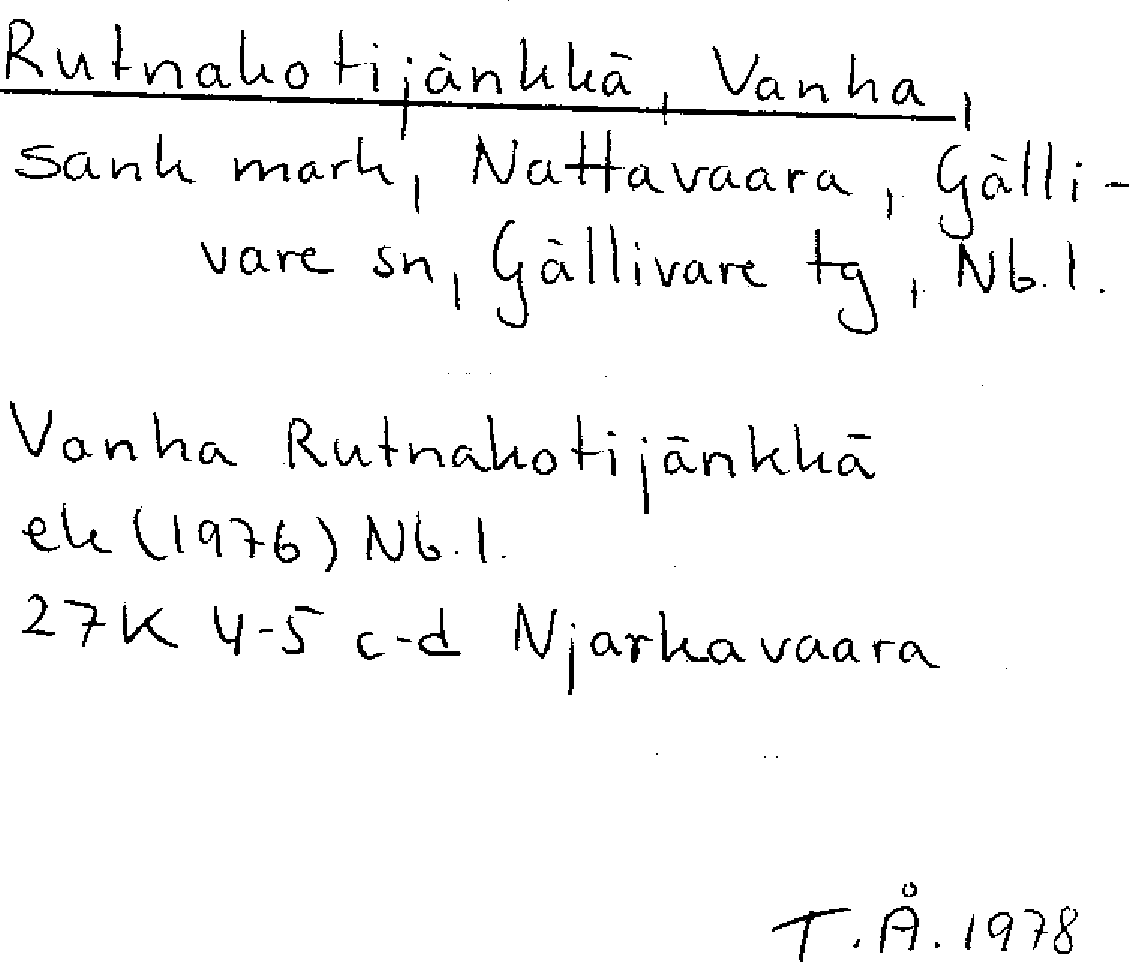 Rutnakotijänkkä, Vanha,
sank mark, Nattavaara, Gälli-
vare sn, Gällivare tg, Nb. l.
Vanha Rutnakotijänkkä
ek (1976) Nb. l.
27K 4-5 c-d Njarkavaara
T.Å. 1978